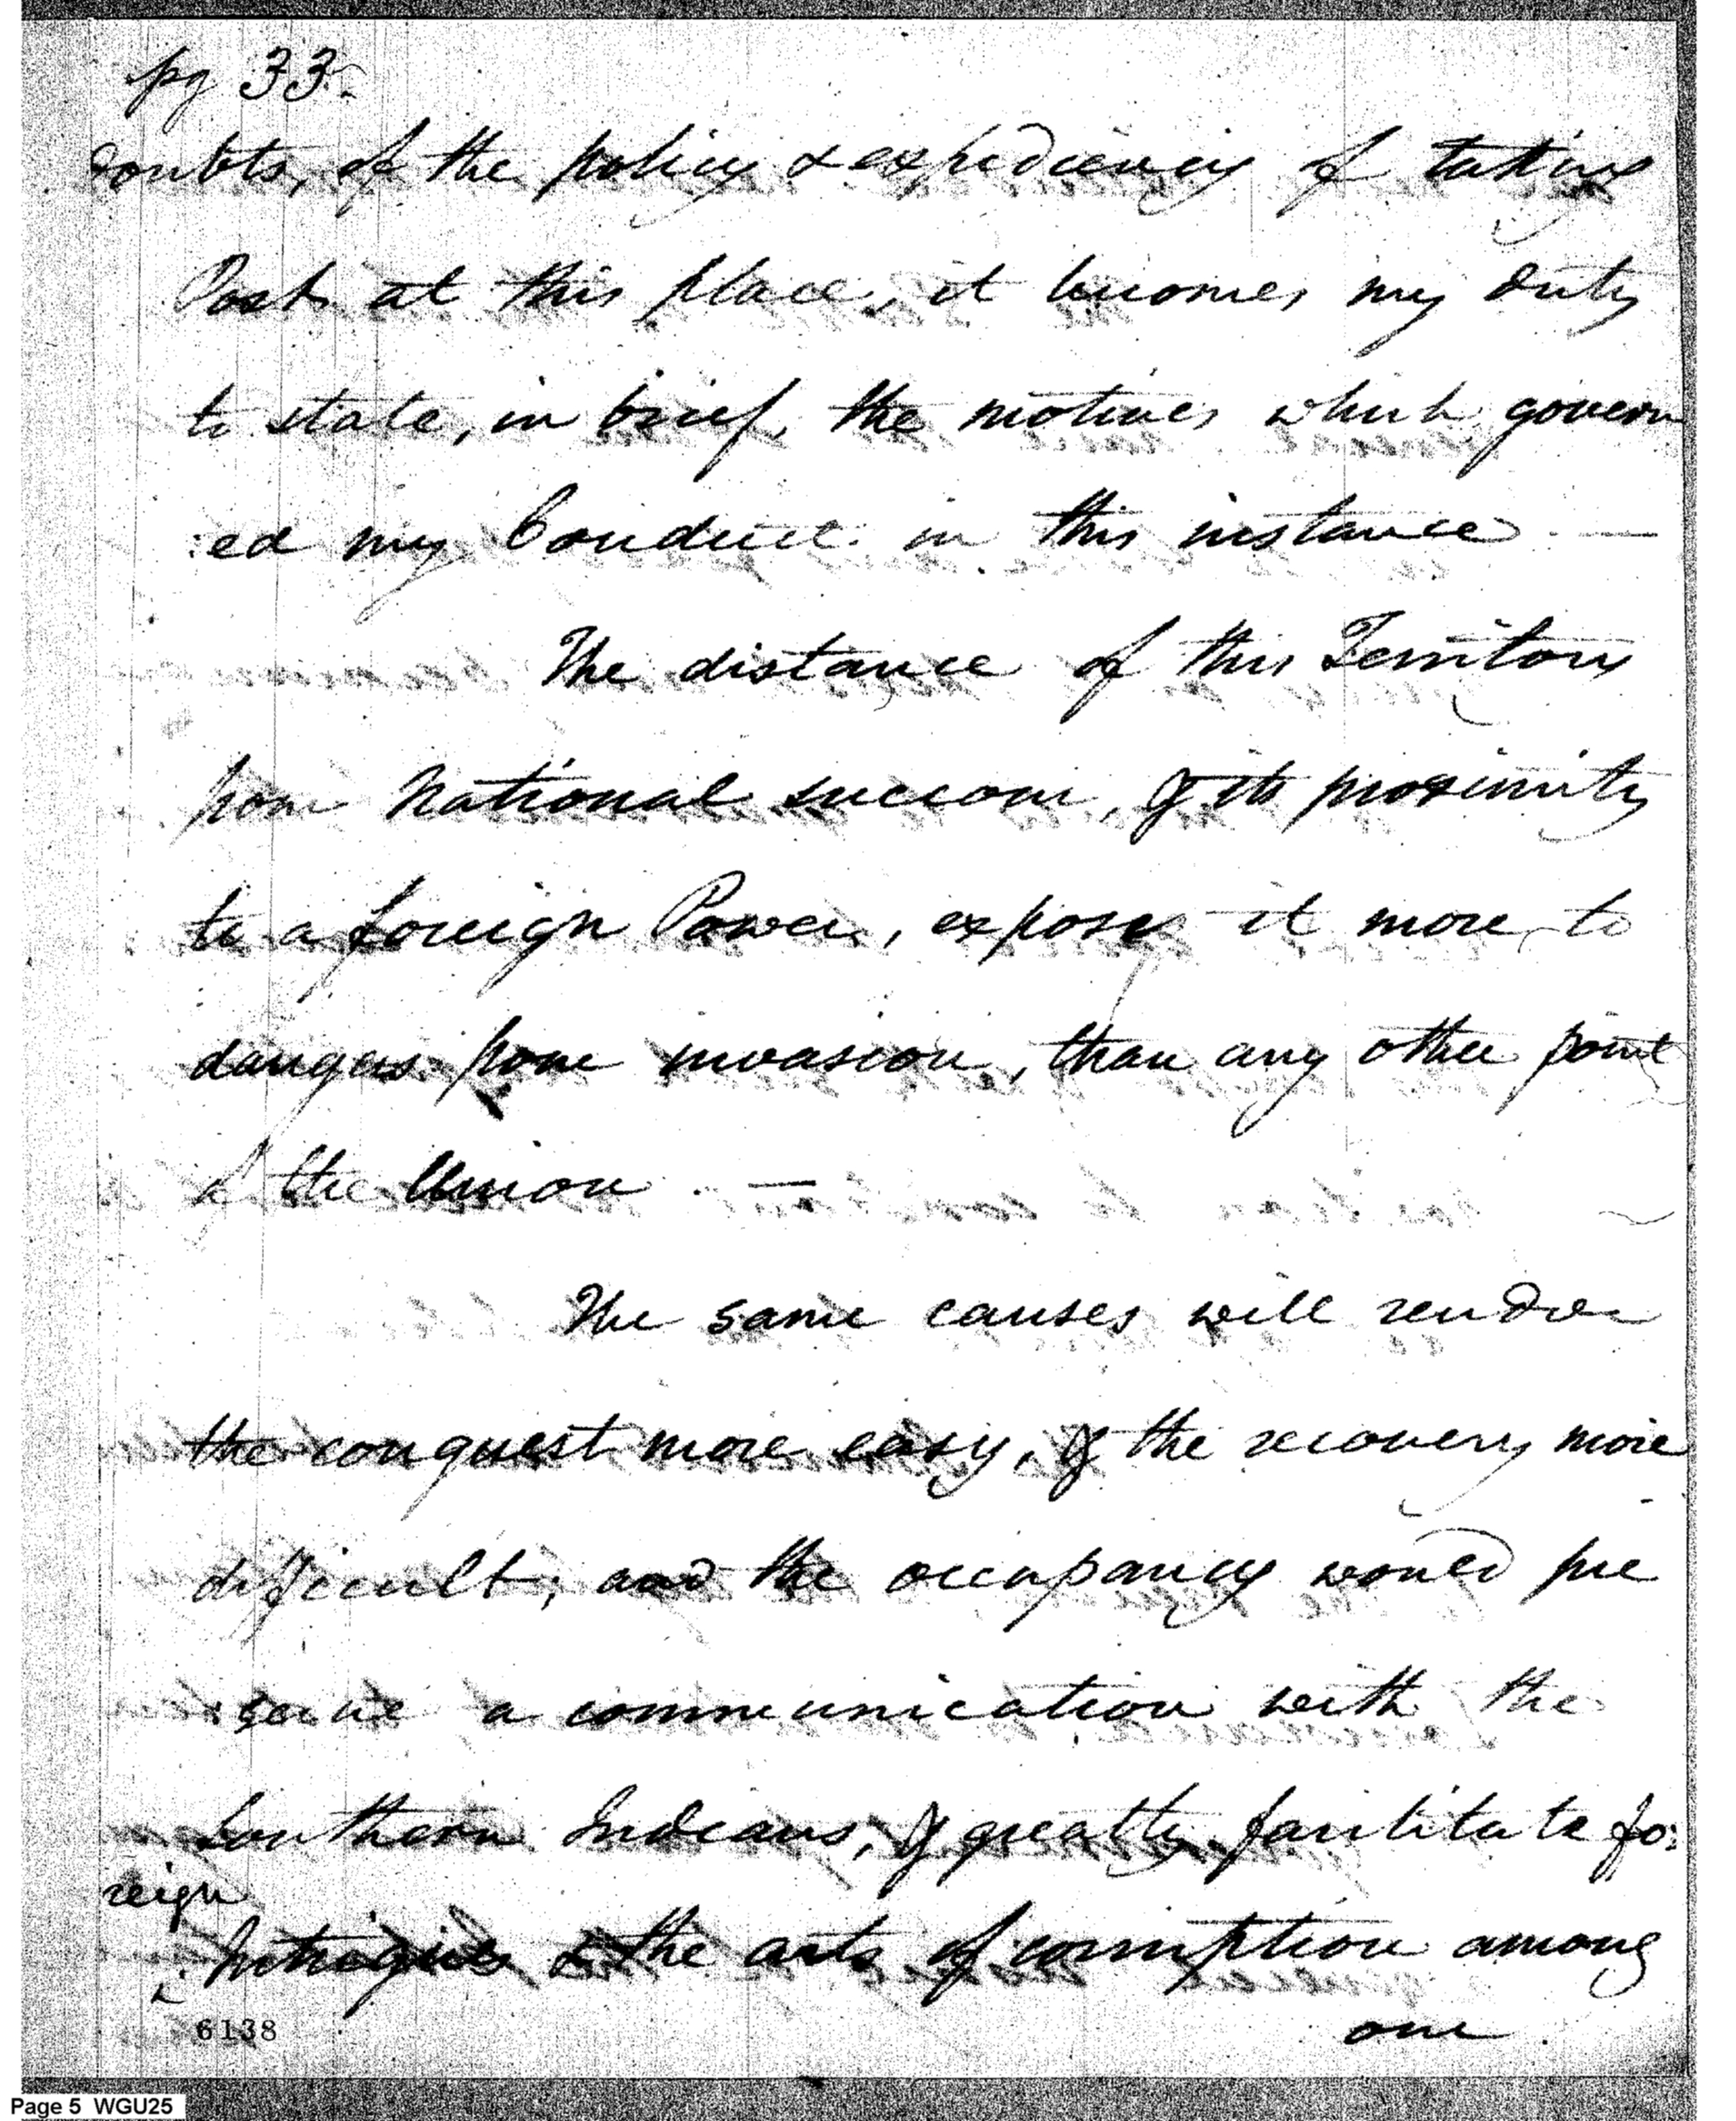 pg 33.
doubts, of the policy & expediency of taking
Post at this place, it becomes my duty
to state, in brief, the motives which govern
:ed my Conduct in this instance —
The distance of this Territory
from National succour, & its proximity
to a foreign Power, exposes it more to
dangers from invasion, than any other point
of the Union. —
The same causes will render
the conquest more easy, & the recovery more
difficult; and the occupancy would pre
:serve a communication with the
Southern Indians, & greatly facilitate fo:
reign
intrigues & the arts of corruption among
our
6138
Page 5 WGU25